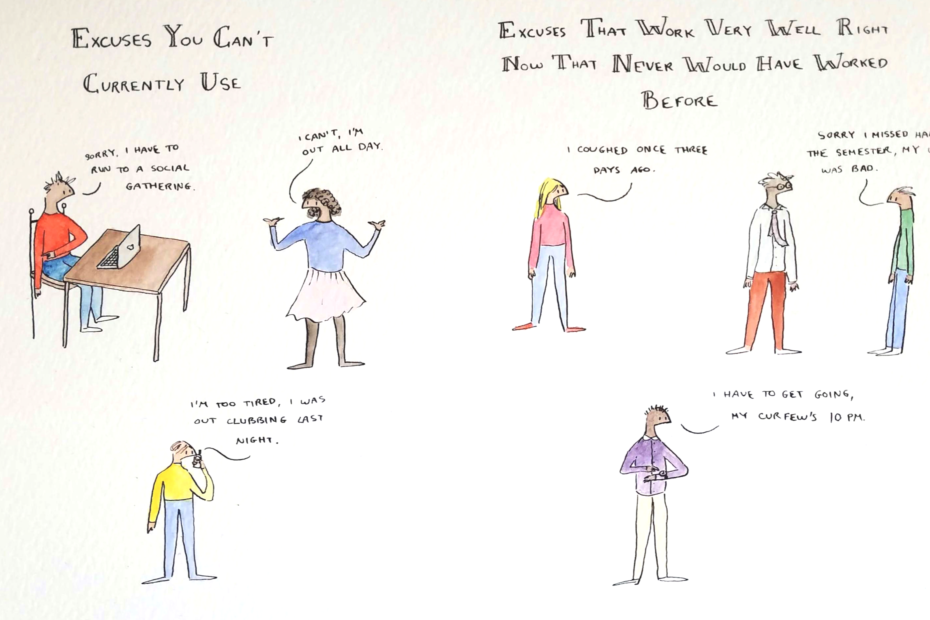 EXCUSES YOU CAN'T
CURRENTLY USE
SORRY, I HAVE TO
RUN TO A SOCIAL
GATHERING.
I CAN'T, I'M
OUT ALL DAY.
I'M TOO TIRED, I WAS
OUT CLUBBING LAST
NIGHT.
EXCUSES THAT WORK VERY WELL RIGHT
NOW THAT NEVER WOULD HAVE WORKED
BEFORE
I COUGHED ONCE THREE
DAYS AGO.
SORRY I MISSED
THE SEMESTER, MY
WAS BAD.
I HAVE TO GET GOING,
MY CURFEW'S 10 PM.